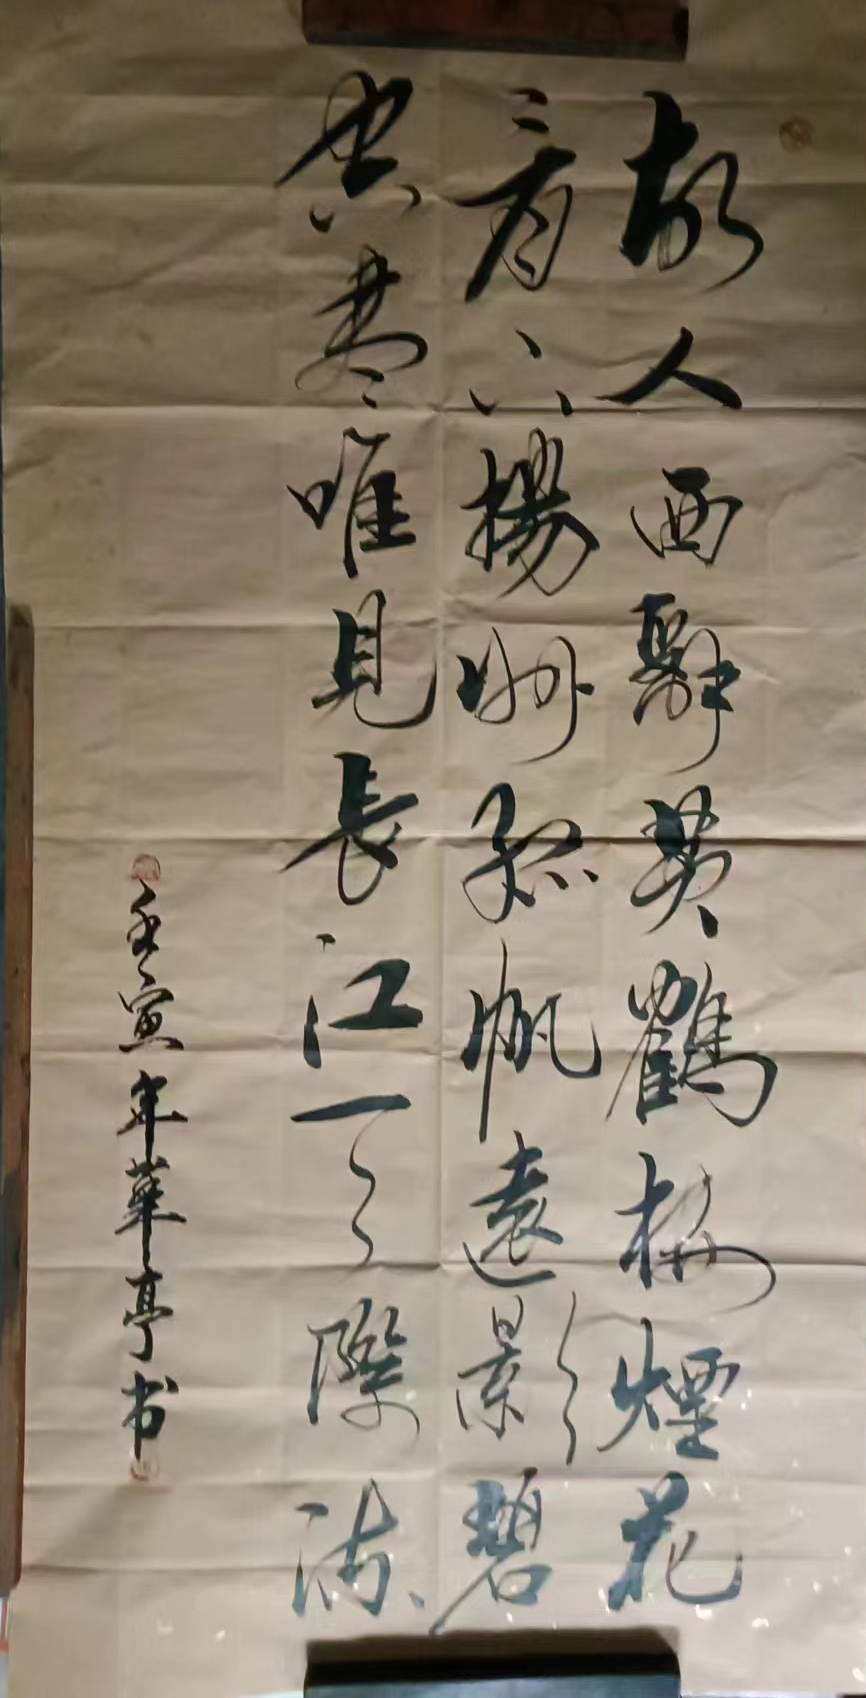 故人西辭黄鶴楼煙花
三月下揚州孤帆遠影碧
空盡唯見長江天際流
壬寅年華亭书